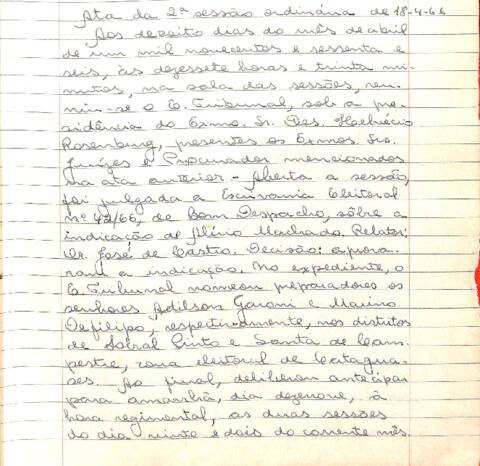 Ata da 2ª sessão ordinária de 18-4-66
Aos dezoito dias do mês de abril
de um mil novecentos e sessenta e
seis, às dezessete horas e trinta mi-
nutos, na sala das sessões, reu-
niu-se o E. Tribunal, sob a pre-
sidência do Exmo. Sr. Des. Helvécio
Rosenburg, presentes os Exmos. Srs.
Juízes e Procurador mencionados
na ata anterior - Aberta a sessão,
foi julgada a Escrivania Eleitoral
nº 42/66, de Bom Despacho, sôbre a
indicação de Plínio Machado. Relator:
Dr. José de Castro. Decisão: aprova-
ram a indicação. No expediente, o
E. Tribunal nomeou preparadores os
senhores Adilson e Mauro
Defilipo, respectivamente, nos distritos
de Sobral Pinto e Santa de Cam-
pestre, zona eleitoral de Catagua-
ses. Ao final, deliberou antecipar
para amanhã, dia dezenove, à
hora regimental, as duas sessões
do dia vinte e dois do corrente mês.